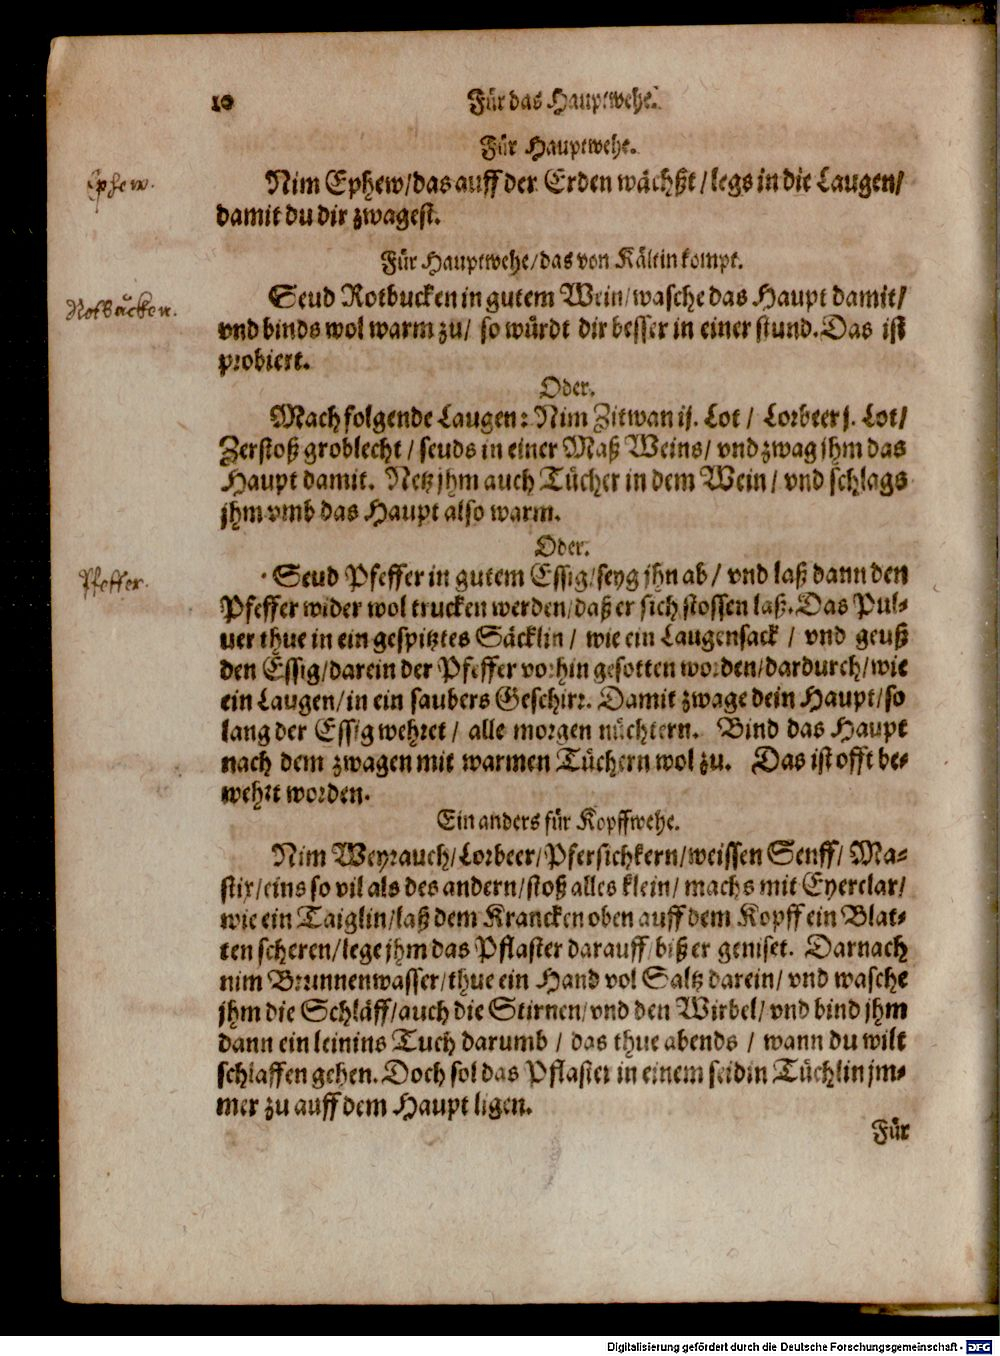 10 Für das Hauptwehe.
Für Hauptwehe.
Ephew.
Nim Ephew/das auff der Erden wächßt/legs in die Laugen/
damit du dir zwagest.
Für Hauptwehe/das von Kältin kompt.
Rotbucken.
Seud Rotbucken in gutem Wein/wasche das Haupt damit/
vnd binds wol warm zu/ so würdt dir besser in einer stund. Das ist
probiert.
Oder.
Mach folgende Laugen: Nim Zitwan ij. Lot/ Lorbeer j. Lot/
Zerstoß groblecht/seuds in einer Maß Weins/ vnd zwag jhm das
Haupt damit. Netz jhm auch Tücher in dem Wein/ vnd schlags
jhm vmb das Haupt also warm.
Oder.
Pfeffer.
Seud Pfeffer in gutem Essig/seyg jhn ab/ vnd laß dann den
Pfeffer wider wol trucken werden/daß er sich stossen laß. Das Pul-
uer thue in ein gespitztes Säcklin/ wie ein Laugensack/ vnd geuß
den Essig/darein der Pfeffer vorhin gesotten worden/dardurch/wie
ein Laugen/in ein saubers Geschirr. Damit zwage dein Haupt/so
lang der Essig wehret/ alle morgen nüchtern. Bind das Haupt
nach dem zwagen mit warmen Tüchern wol zu. Das ist offt be-
wehrt worden.
Ein anders für Kopffwehe.
Nim Weyrauch/Lorbeer/Pfersichkern/weissen Senff/ Ma-
stix/eins so vil als des andern/stoß alles klein/ machs mit Eyerclar/
wie ein Taiglin/laß dem Krancken oben auff dem Kopff ein Blat-
ten scheren/lege jhm das Pflaster darauff/biß er geniset. Darnach
nim Brunnenwasser/thue ein Hand vol Saltz darein/ vnd wasche
jhm die Schläff/auch die Stirnen/vnd den Wirbel/ vnd bind jhm
dann ein leinins Tuch darumb/ das thue abends/ wann du wilt
schlaffen gehen. Doch sol das Pflaster in einem seidin Tüchlin jm-
mer zu auff dem Haupt ligen.
Für
Digitalisierung gefördert durch die Deutsche Forschungsgemeinschaft - DFG